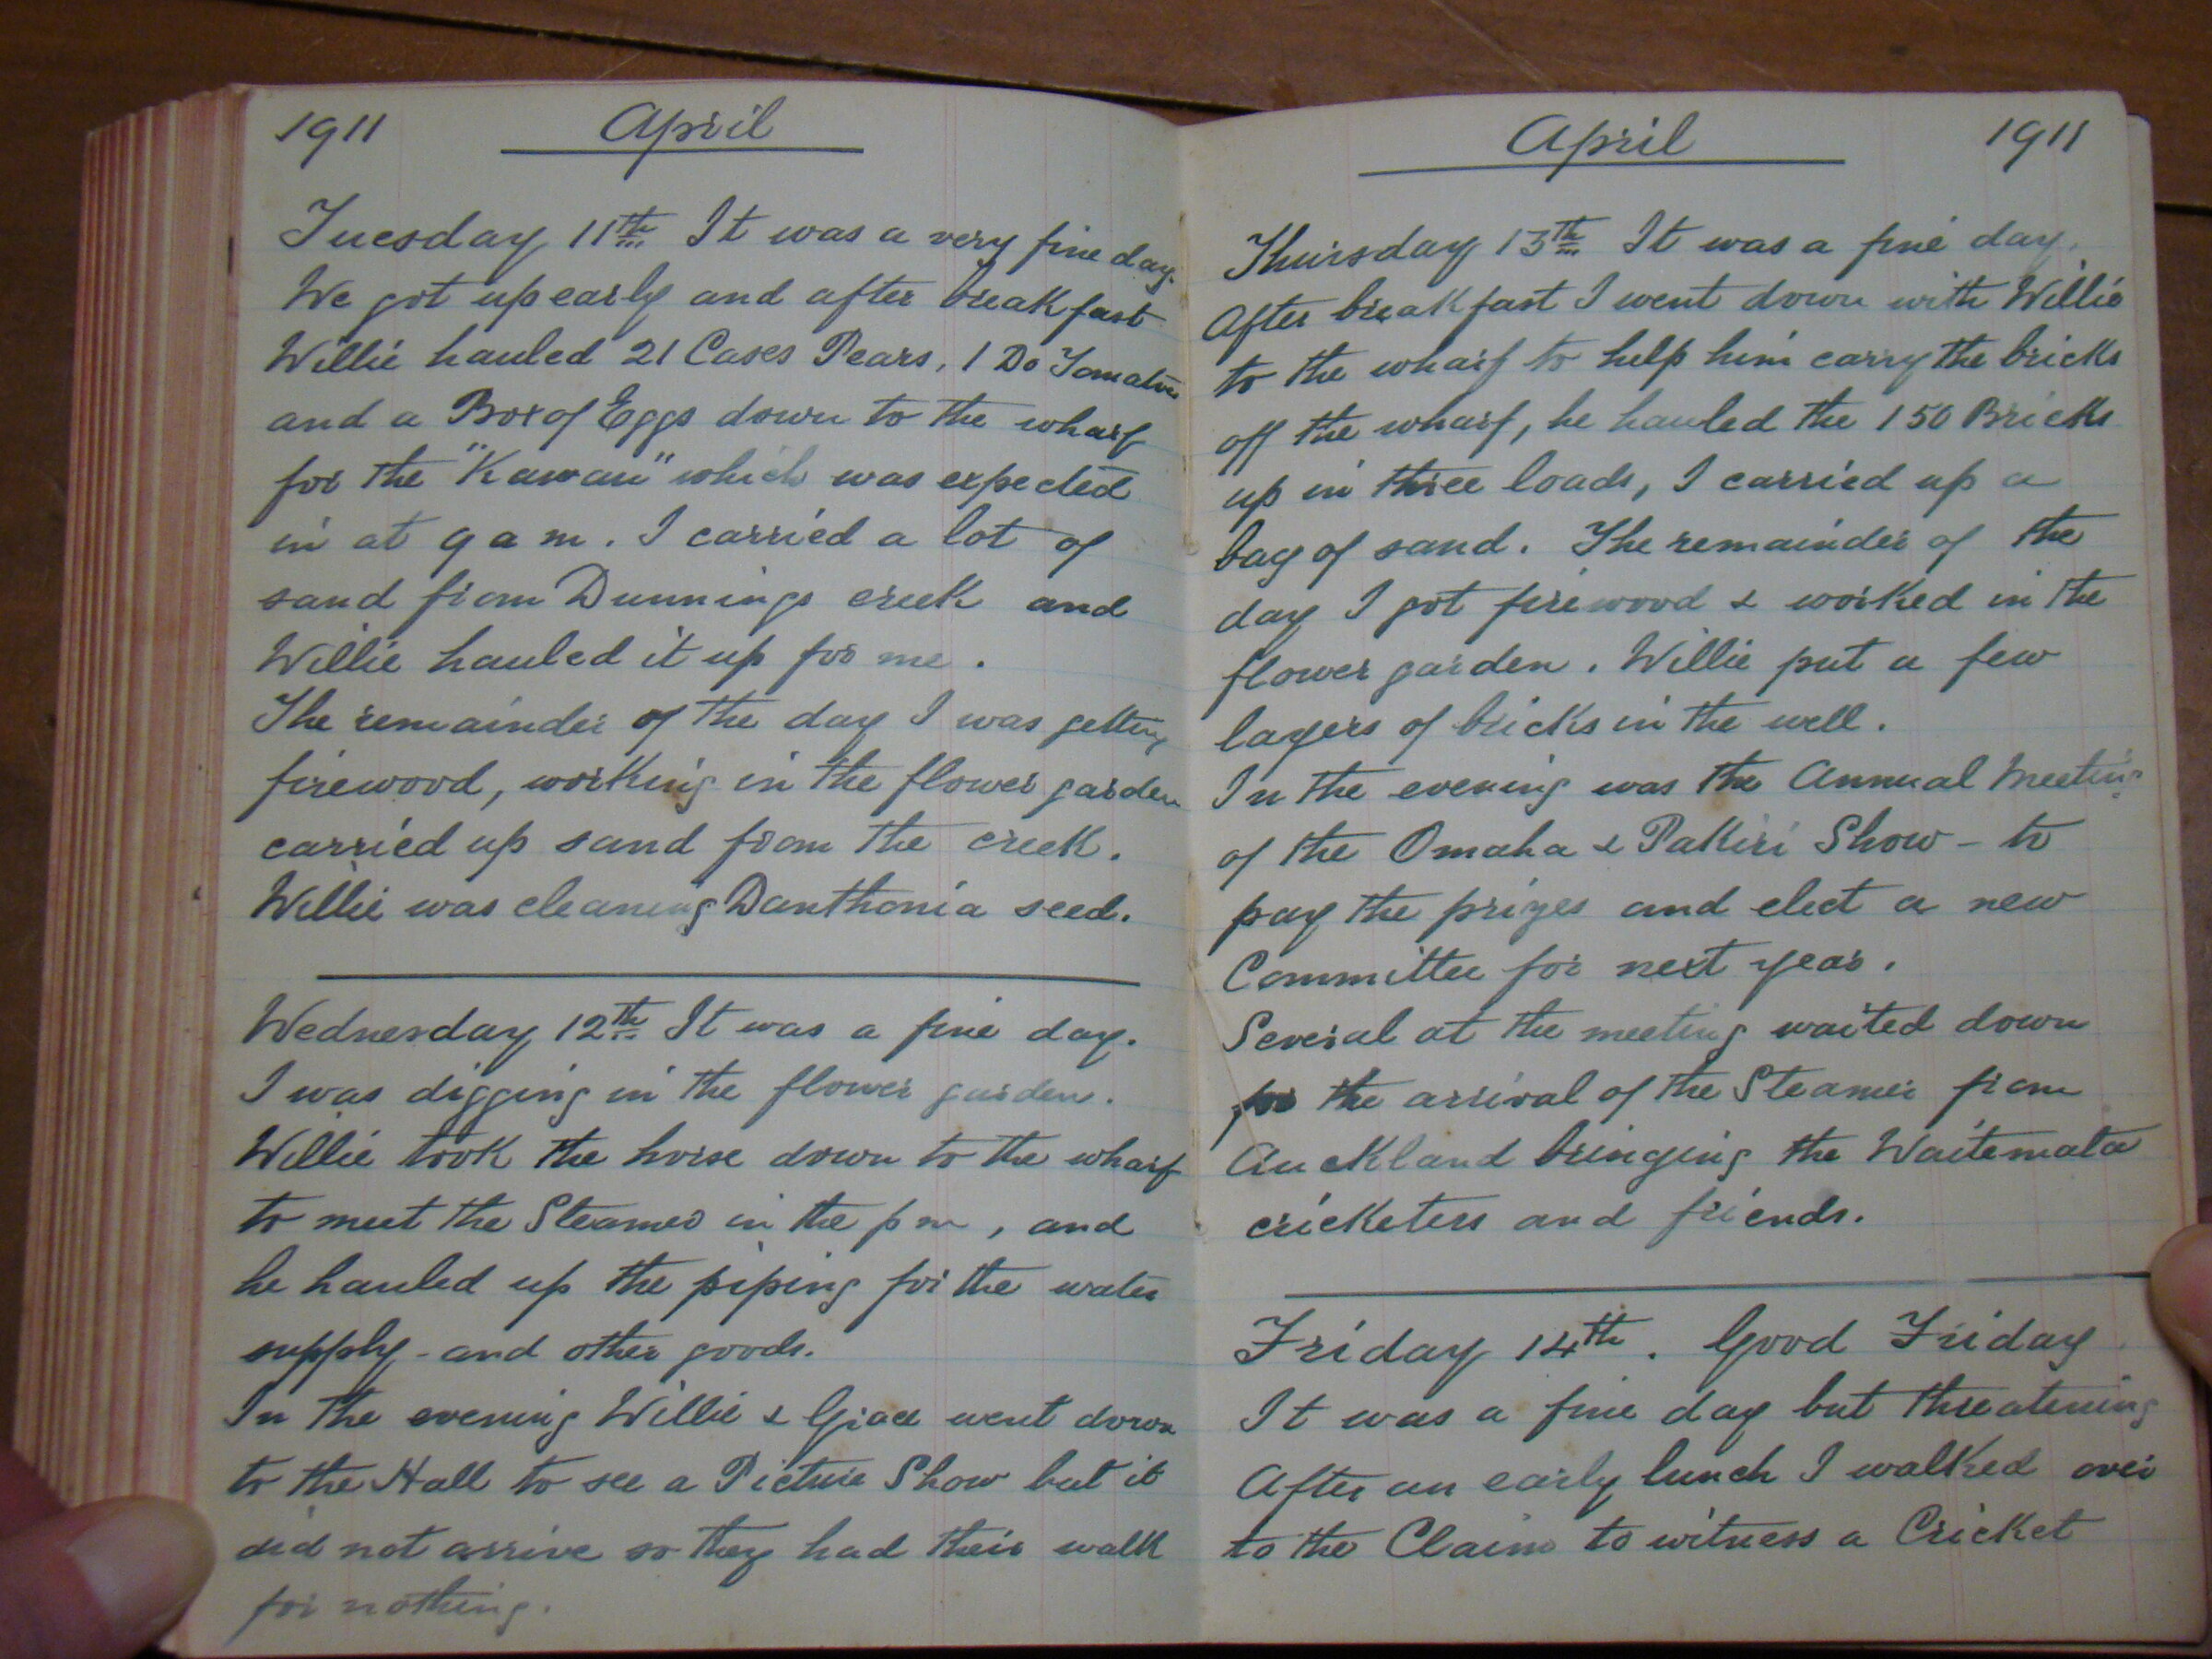 1911 April
Tuesday 11th It was a very fine day.
We got up early and after breakfast
Willie hauled 21 Cases Pears, 1 Do Tomatoes
and a Box of Eggs down to the wharf
for the "Kawau" which was expected
in at 9 a m. I carried a lot of
sand from Dunnings creek and
Willie hauled it up for me.
The remainder of the day I was getting
firewood, working in the flower garden
carried up sand from the creek.
Willie was cleaning Danthonia seed.
Wednesday 12th It was a fine day.
I was digging in the flower garden.
Willie took the horse down to the wharf
to meet the Steamer in the p m, and
he hauled up the piping for the water
supply - and other goods.
In the evening Willie & Grace went down
to the Hall to see a Picture Show but it
did not arrive so they had their walk
for nothing.
April 1911
Thursday 13th It was a fine day.
After breakfast I went down with Willie
to the wharf to help him carry the bricks
off the wharf, he hauled the 150 Bricks
up in three loads, I carried up a
bag of sand. The remainder of the
day I got firewood & worked in the
flower garden. Willie put a few
layers of bricks in the well.
In the evening was the Annual Meeting
of the Omaha & Pakiri Show - to
pay the prizes and elect a new
Committee for next year.
Several at the meeting waited down
for the arrival of the Steamer from
Auckland bringing the Waitemata
cricketers and friends.
Friday 14th. Good Friday
It was a fine day but threatening
After an early lunch I walked over
to the Claim to witness a Cricket